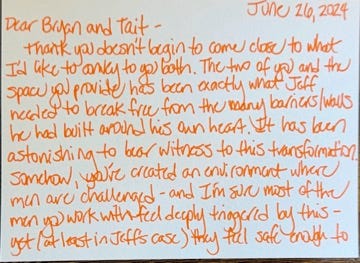 June 26, 2024
Dear Bryan and Tait -
Thank you doesn't begin to come close to what
I'd like to convey to you both. The two of you and the
space you provide has been exactly what Jeff
needed to break free from the many barriers/walls
he had built around his own heart. It has been
astonishing to bear witness to this transformation.
Somehow, you've created an environment where
men are challenged - and I'm sure most of the
men you work with feel deeply triggered by this -
yet (at least in Jeff's case) they feel safe enough to